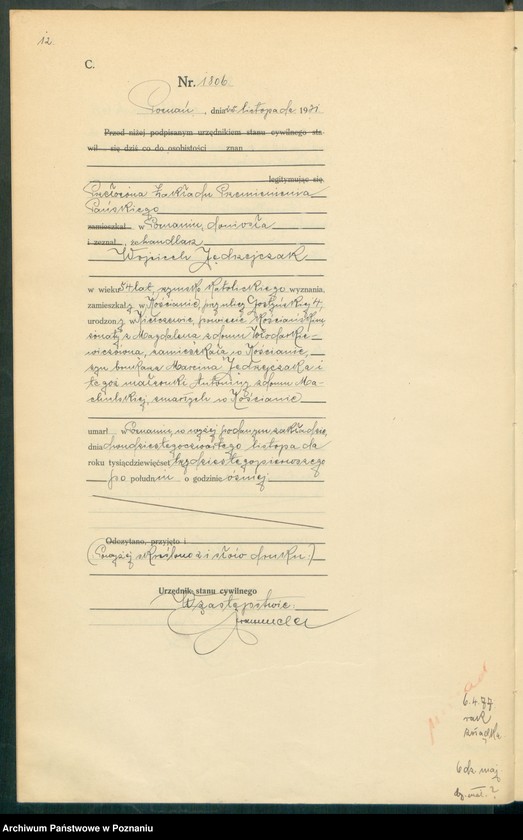 12.
C.
Nr. 1806.
Poznań, dnia listopada 1931
Przed niżej podpisanym urzędnikiem stanu cywilnego sta-
wił się dziś co do osobistości znan
legitymując się
Przełożona Zakładu Przemienienia
Pańskiego
zamieszkał w Poznaniu, doniosła
i zeznał, że handlarz
Wojciech Jędrzejczak
w wieku 54 lat, rzymsko katolickiego wyznania,
zamieszkały w Kościanie, przy ulicy Gostyńskiej 4,
urodzony w powiecie Kościańskim,
żonaty z Magdaleną z domu
zamieszkałą w Kościanie,
syn Marcina Jędrzejczaka i
tegoż małżonki Antoniny z domu Ma-
zmarłych w Kościanie
umarł w Poznaniu, w wyżej podanym zakładzie,
dnia dwudziestegoczwartego listopada
roku tysiącdziewięćset trzydziestegopierwszego
po południu o godzinie ósmej
Odczytano, przyjęto i
(Powyżej skreślono słów druku.)
Urzędnik stanu cywilnego
W zastępstwie:
6.4.77
6 dz. maj
Archiwum Państwowe w Poznaniu